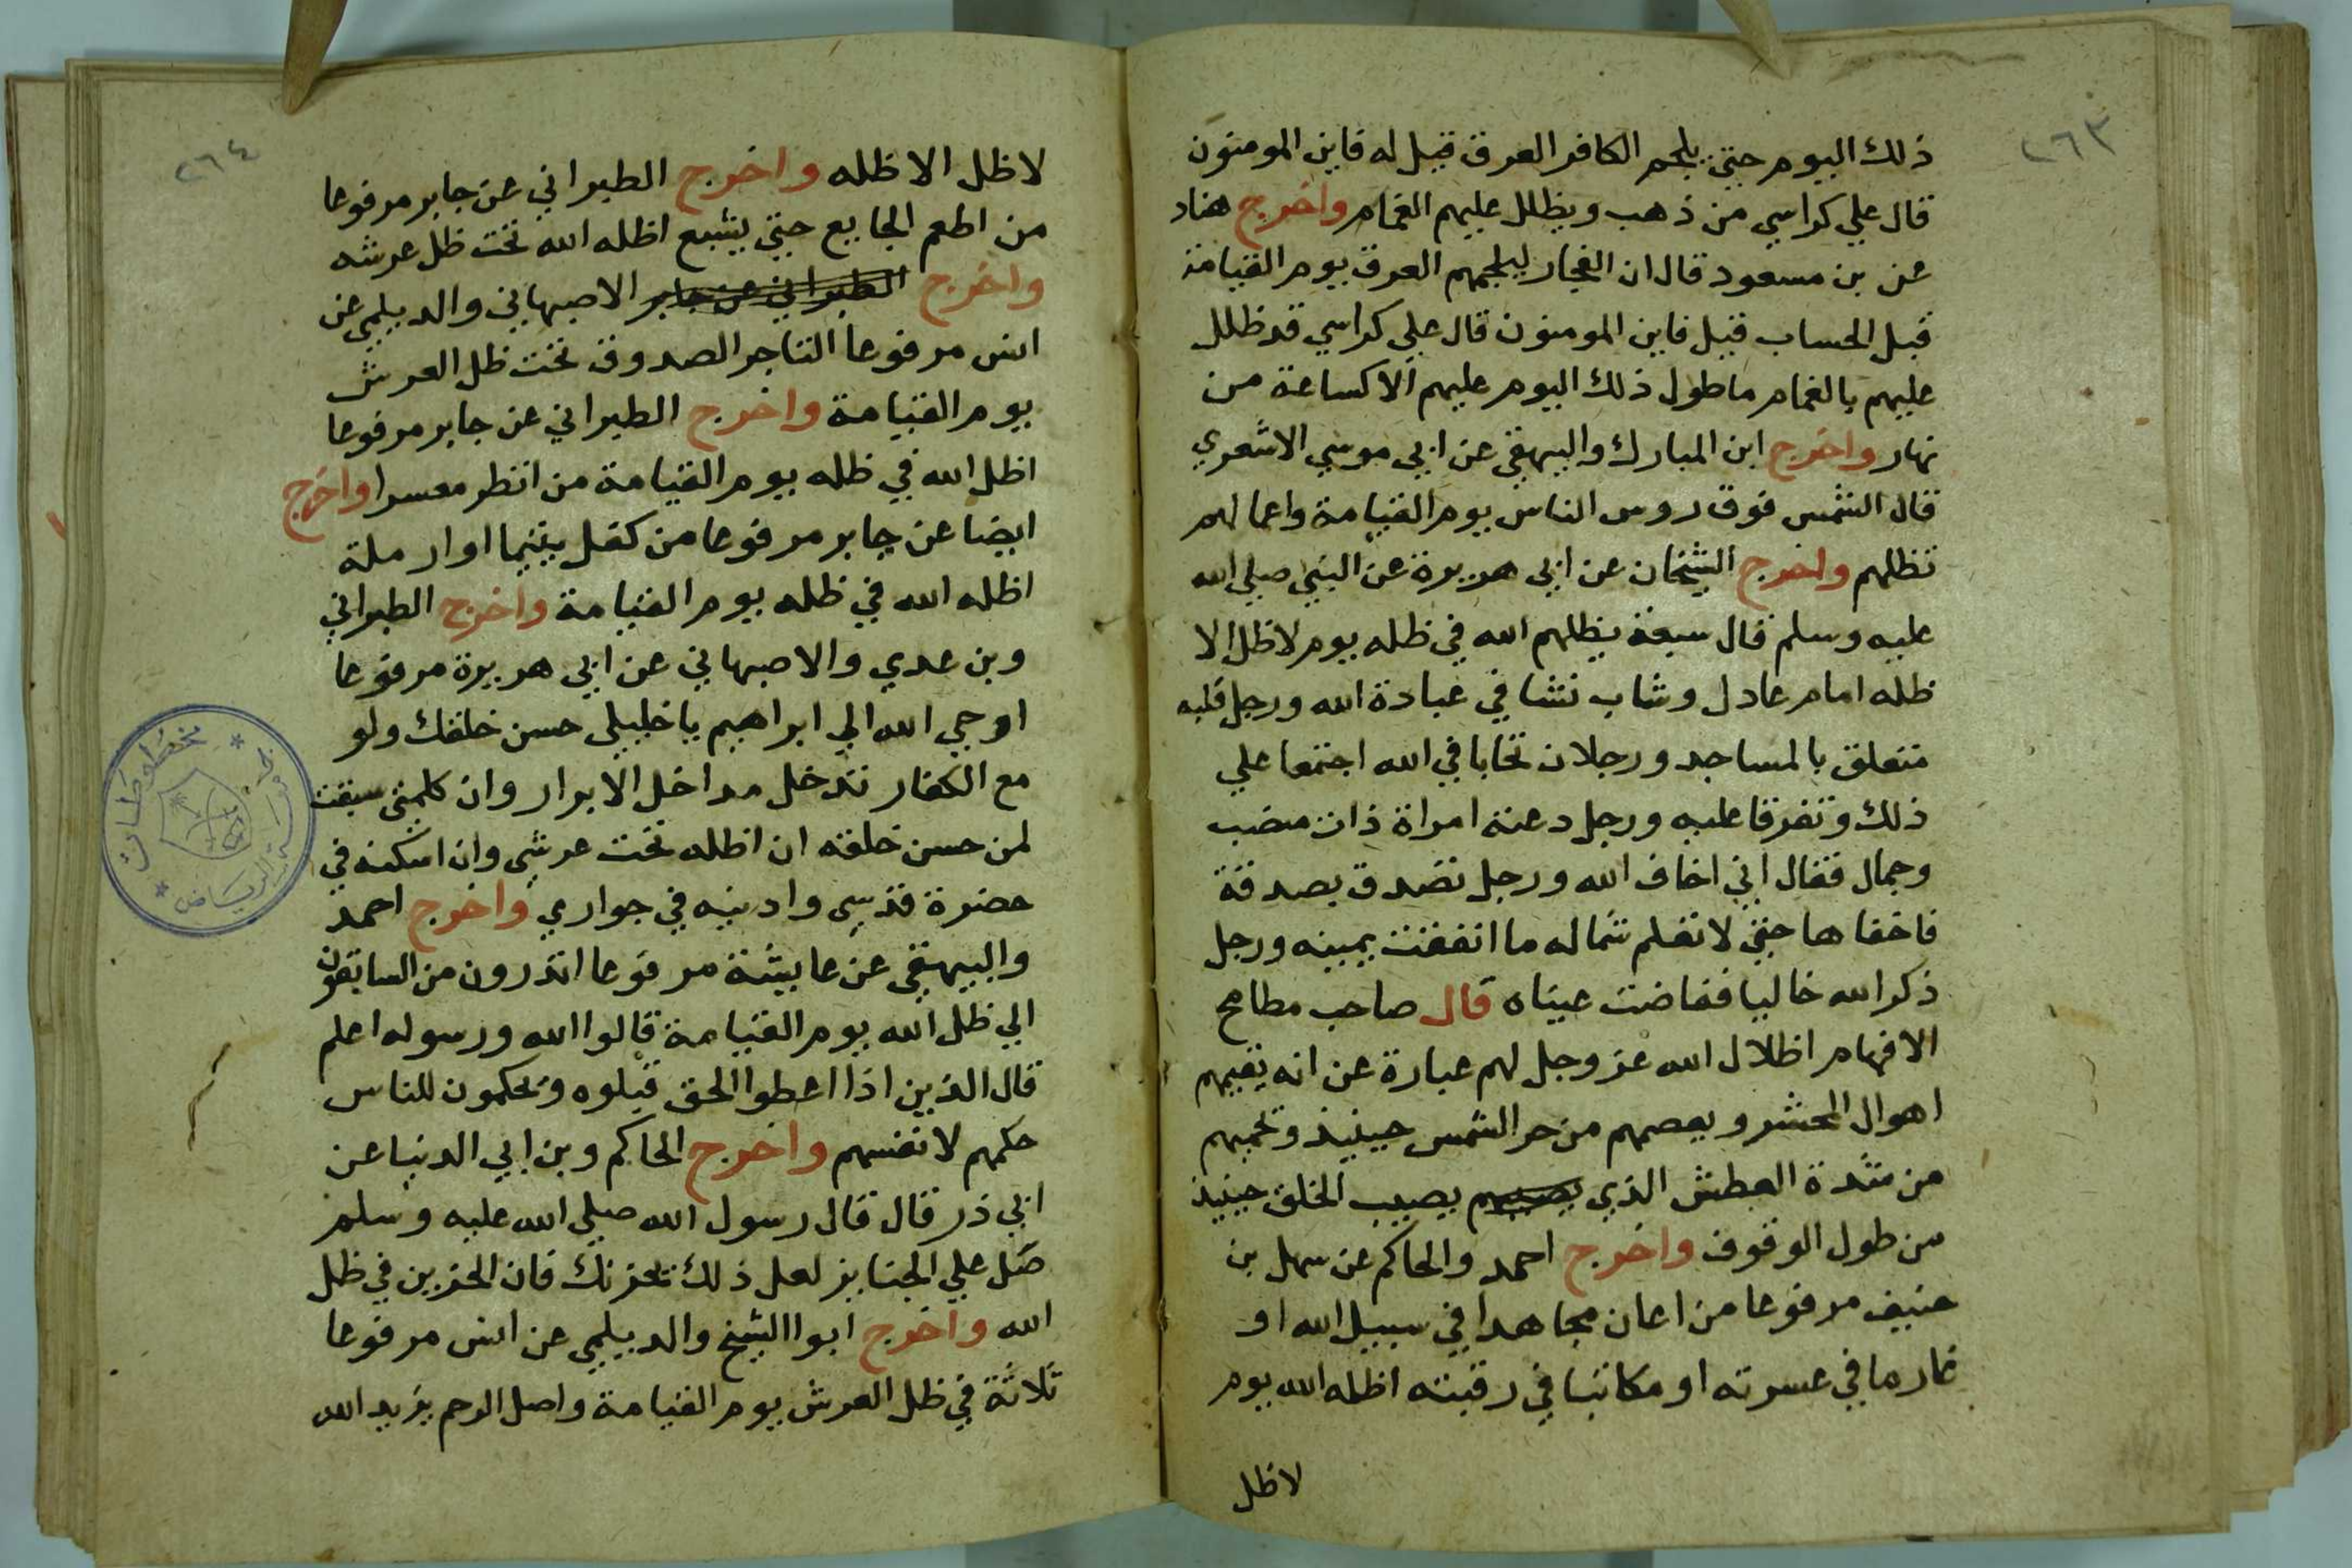 ٢٦٣
ذلك اليوم حتي يلجم الكافر العرق قيل له فاين المومنون
قال علي كراسي من ذهب ويظلل عليهم الغمام واخرج هناد
عن بن مسعود قال ان الفجار ليلجمهم العرق يوم القيامة
قبل الحساب قيل فاين المومنون قال علي كراسي قد ظلل
عليهم بالغمام ما طول ذلك اليوم عليهم الا كساعة من
نهار واخرج ابن المبارك والبيهقي عن ابي موسي الاشعري
قال الشمس فوق روس الناس يوم القيامة واعمالهم
تظلهم واخرج الشيخان عن ابي هريرة عن النبي صلي الله
عليه وسلم قال سبعة يظلهم الله في ظله يوم لا ظل الا
ظله امام عادل وشاب نشا في عبادة الله ورجل قلبه
متعلق بالمساجد ورجلان تحابا في الله اجتمعا علي
ذلك وتفرقا عليه ورجل دعته امراة ذات منصب
وجمال فقال اني اخاف الله ورجل تصدق بصدقة
فاخفاها حتي لا تعلم شماله ما انفقت يمينه ورجل
ذكر الله خاليا ففاضت عيناه قال صاحب مطامح
الافهام اظلال الله عز وجل لهم عبارة عن انه يقيهم
اهوال المحشر ويعصمهم من حر الشمس حينيذ وتحميهم
من شدة العطش الذي يصيبهم يصيب الخلق حينيذ
من طول الوقوف واخرج احمد والحاكم عن سهل بن
حنيف مرفوعا من اعان مجاهدا في سبيل الله او
غارما في عسرته او مكاتبا في رقبته اظله الله يوم
لا ظل
٢٦٤
لا ظل الا ظله واخرج الطبراني عن جابر مرفوعا
من اطعم الجايع حتي يشبع اظله الله تحت ظل عرشه
واخرج الطبراني عن جابر الاصبهاني والديلمي عن
انس مرفوعا التاجر الصدوق تحت ظل العرش
يوم القيامة واخرج الطبراني عن جابر مرفوعا
اظل الله في ظله يوم القيامة من انظر معسرا واخرج
ايضا عن جابر مرفوعا من كفل يتيما او ارملة
اظله الله في ظله يوم القيامة واخرج الطبراني
وبن عدي والاصبهاني عن ابي هريرة مرفوعا
اوحي الله الي ابراهيم يا خليلي حسن خلقك ولو
مع الكفار تدخل مداخل الابرار وان كلمتي سبقت
لمن حسن خلقه ان اظله تحت عرشي وان اسكنه في
حضرة قدسي وادنيه في جواري واخرج احمد
والبيهقي عن عايشة مرفوعا اتدرون من السابقون
الي ظل الله يوم القيامة قالوا الله ورسوله اعلم
قال الذين اذا اعطوا الحق قبلوه وتحكمون للناس
حكمهم لانفسهم واخرج الحاكم وبن ابي الدنيا عن
ابي ذر قال قال رسول الله صلي الله عليه وسلم
صل علي الجنايز لعل ذلك تحزنك فان الحزين في ظل
الله واخرج ابوا الشيخ والديلمي عن انس مرفوعا
ثلاثة في ظل العرش يوم القيامة واصل الرحم يزيد الله
مخطوطات
الرياض